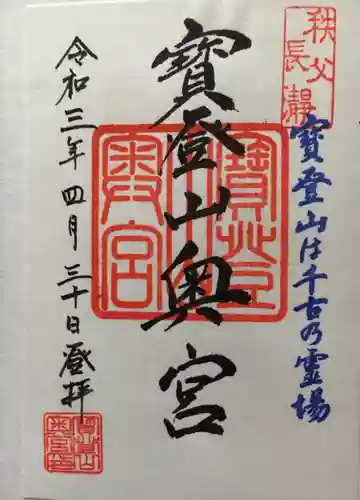 秩父
長瀞
寶登山は千古乃霊場
寶登山奥宮
令和三年四月三十日登拝